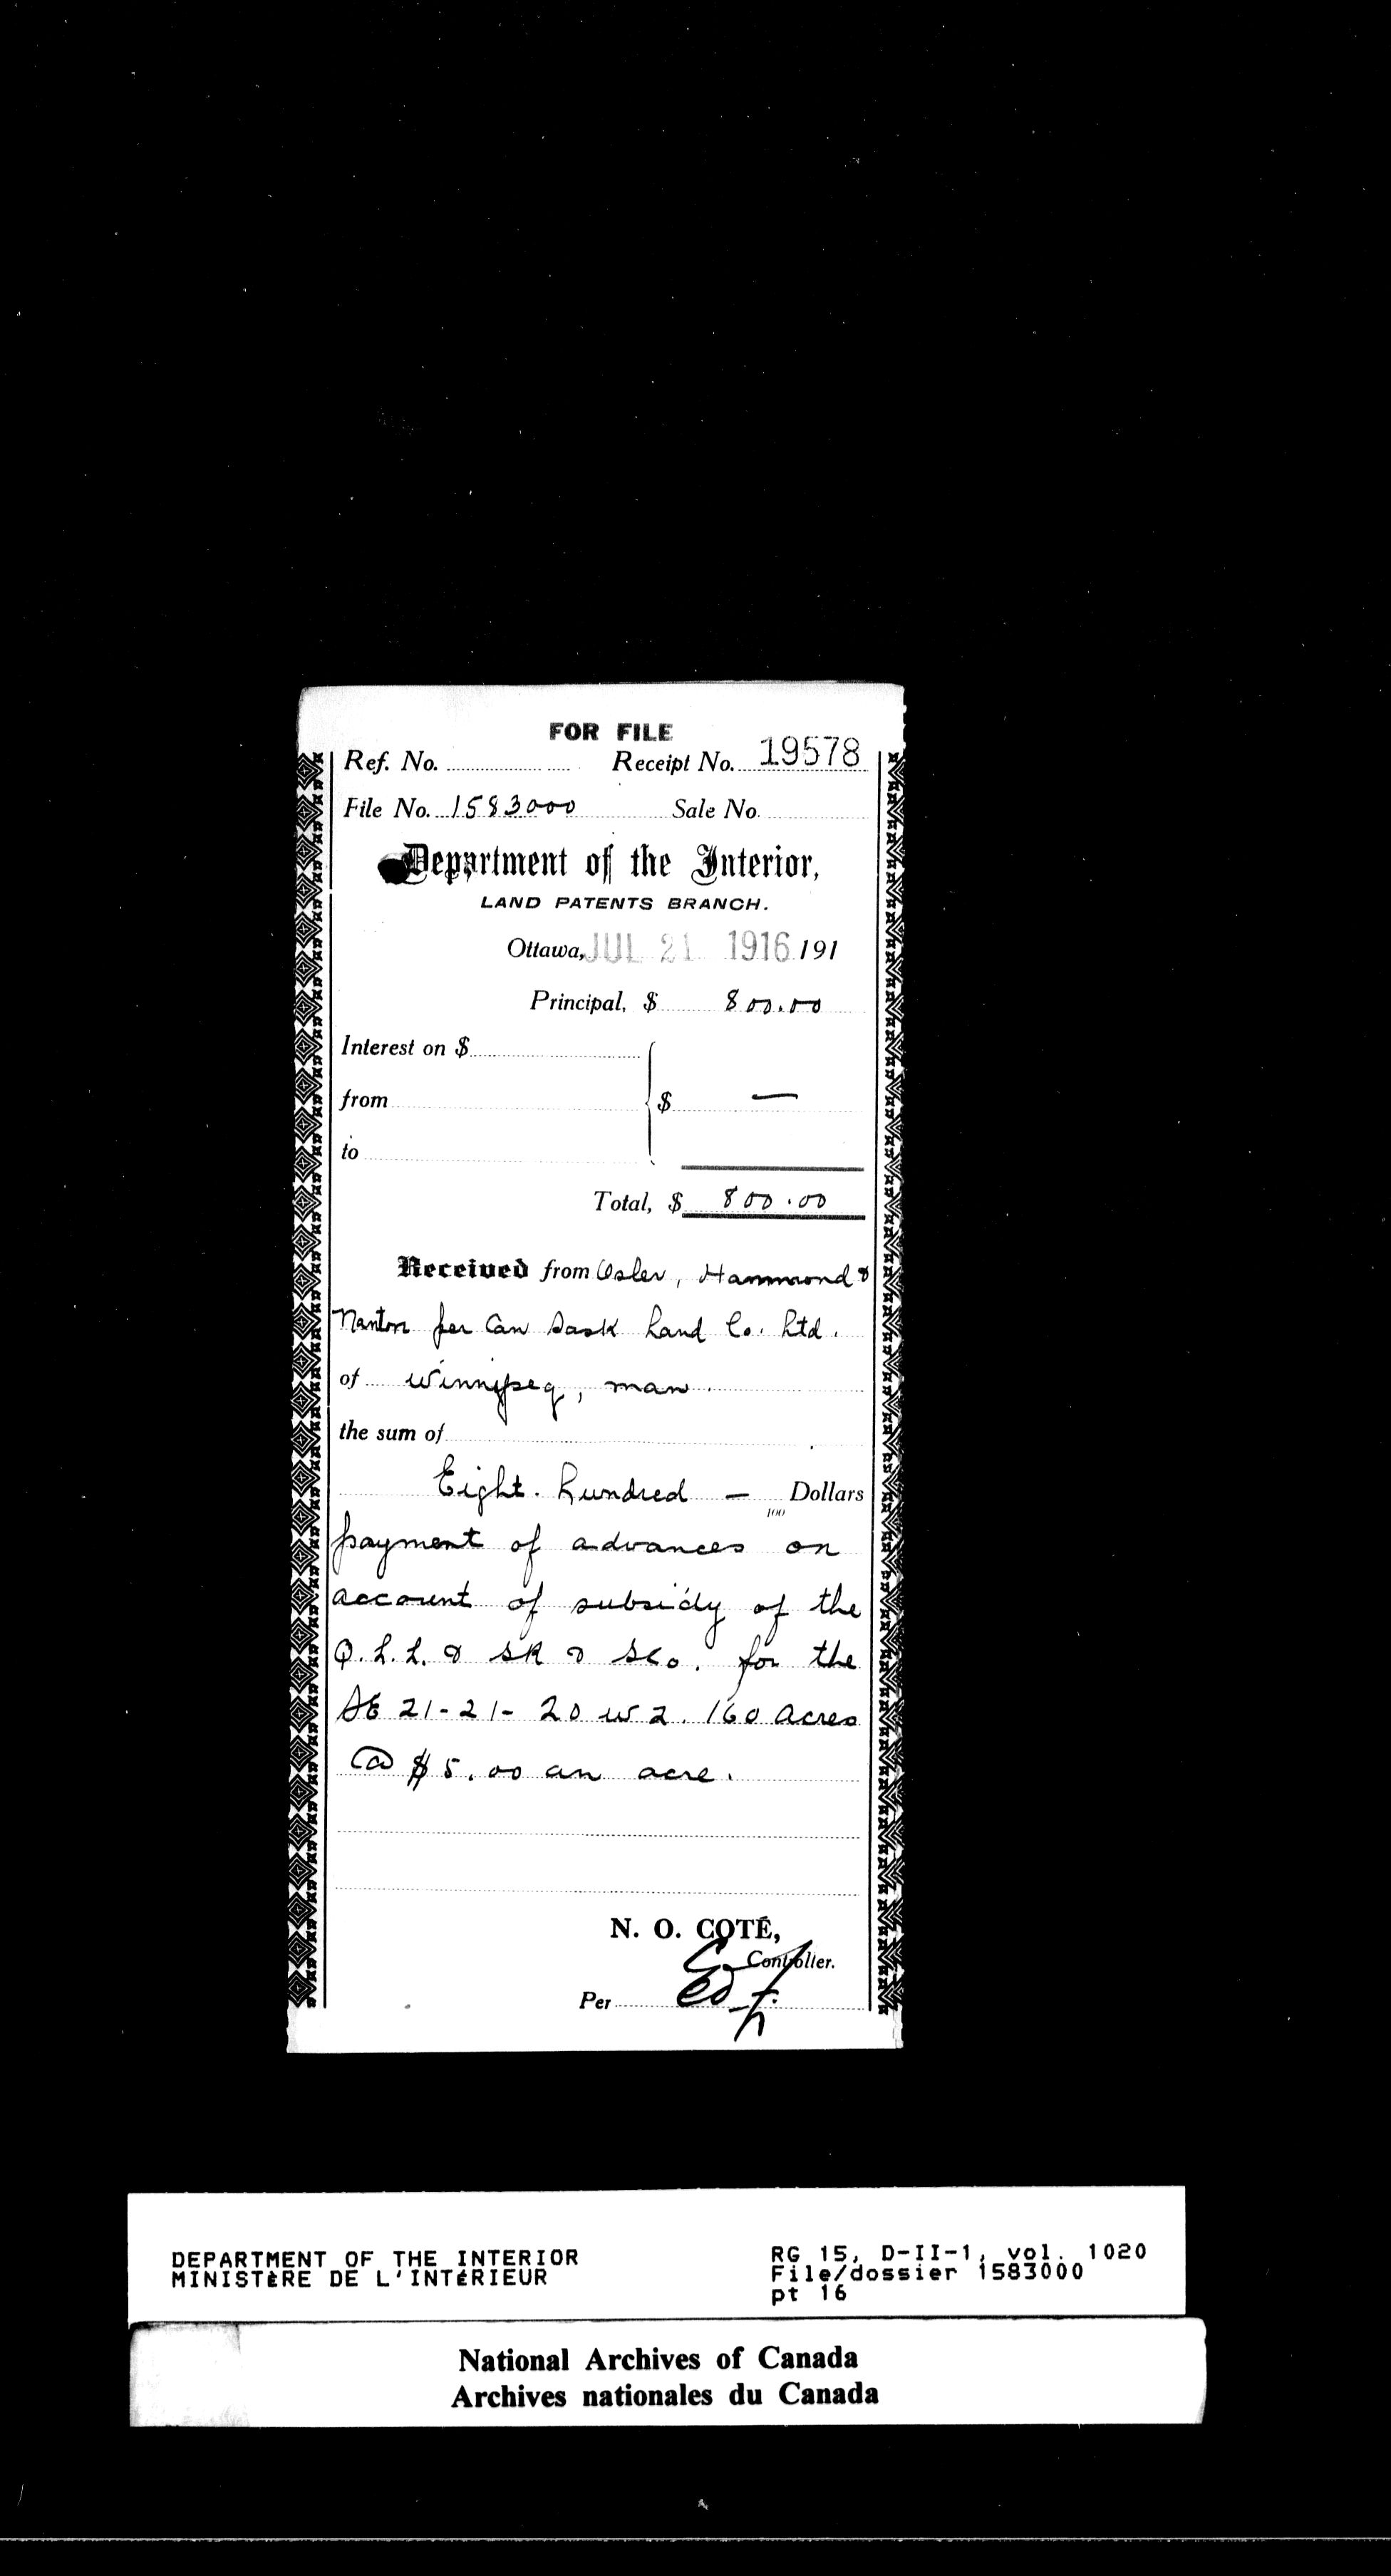 FOR FILE
Ref. No. Receipt No. 19578
File No. 1583000 Sale No.
Department of the Interior,
LAND PATENTS BRANCH.
Ottawa, JUL 21 1916 191
Principal, $ 800.00
Interest on $
from $ —
to
Total, $ 800.00
Received from Osler, Hammond &
Nanton per Can Sask Land Co. Ltd.
of Winnipeg, man.
the sum of
Eight hundred — Dollars
100
payment of advances on
account of subsidy of the
Q.L.L. & SR & SCo. for the
SE 21-21-20 w 2. 160 acres
@ $5.00 an acre.
N. O. COTÉ,
Controller.
Per
DEPARTMENT OF THE INTERIOR
MINISTÈRE DE L'INTÉRIEUR
RG 15, D-II-1, vol. 1020
File/dossier 1583000
pt 16
National Archives of Canada
Archives nationales du Canada